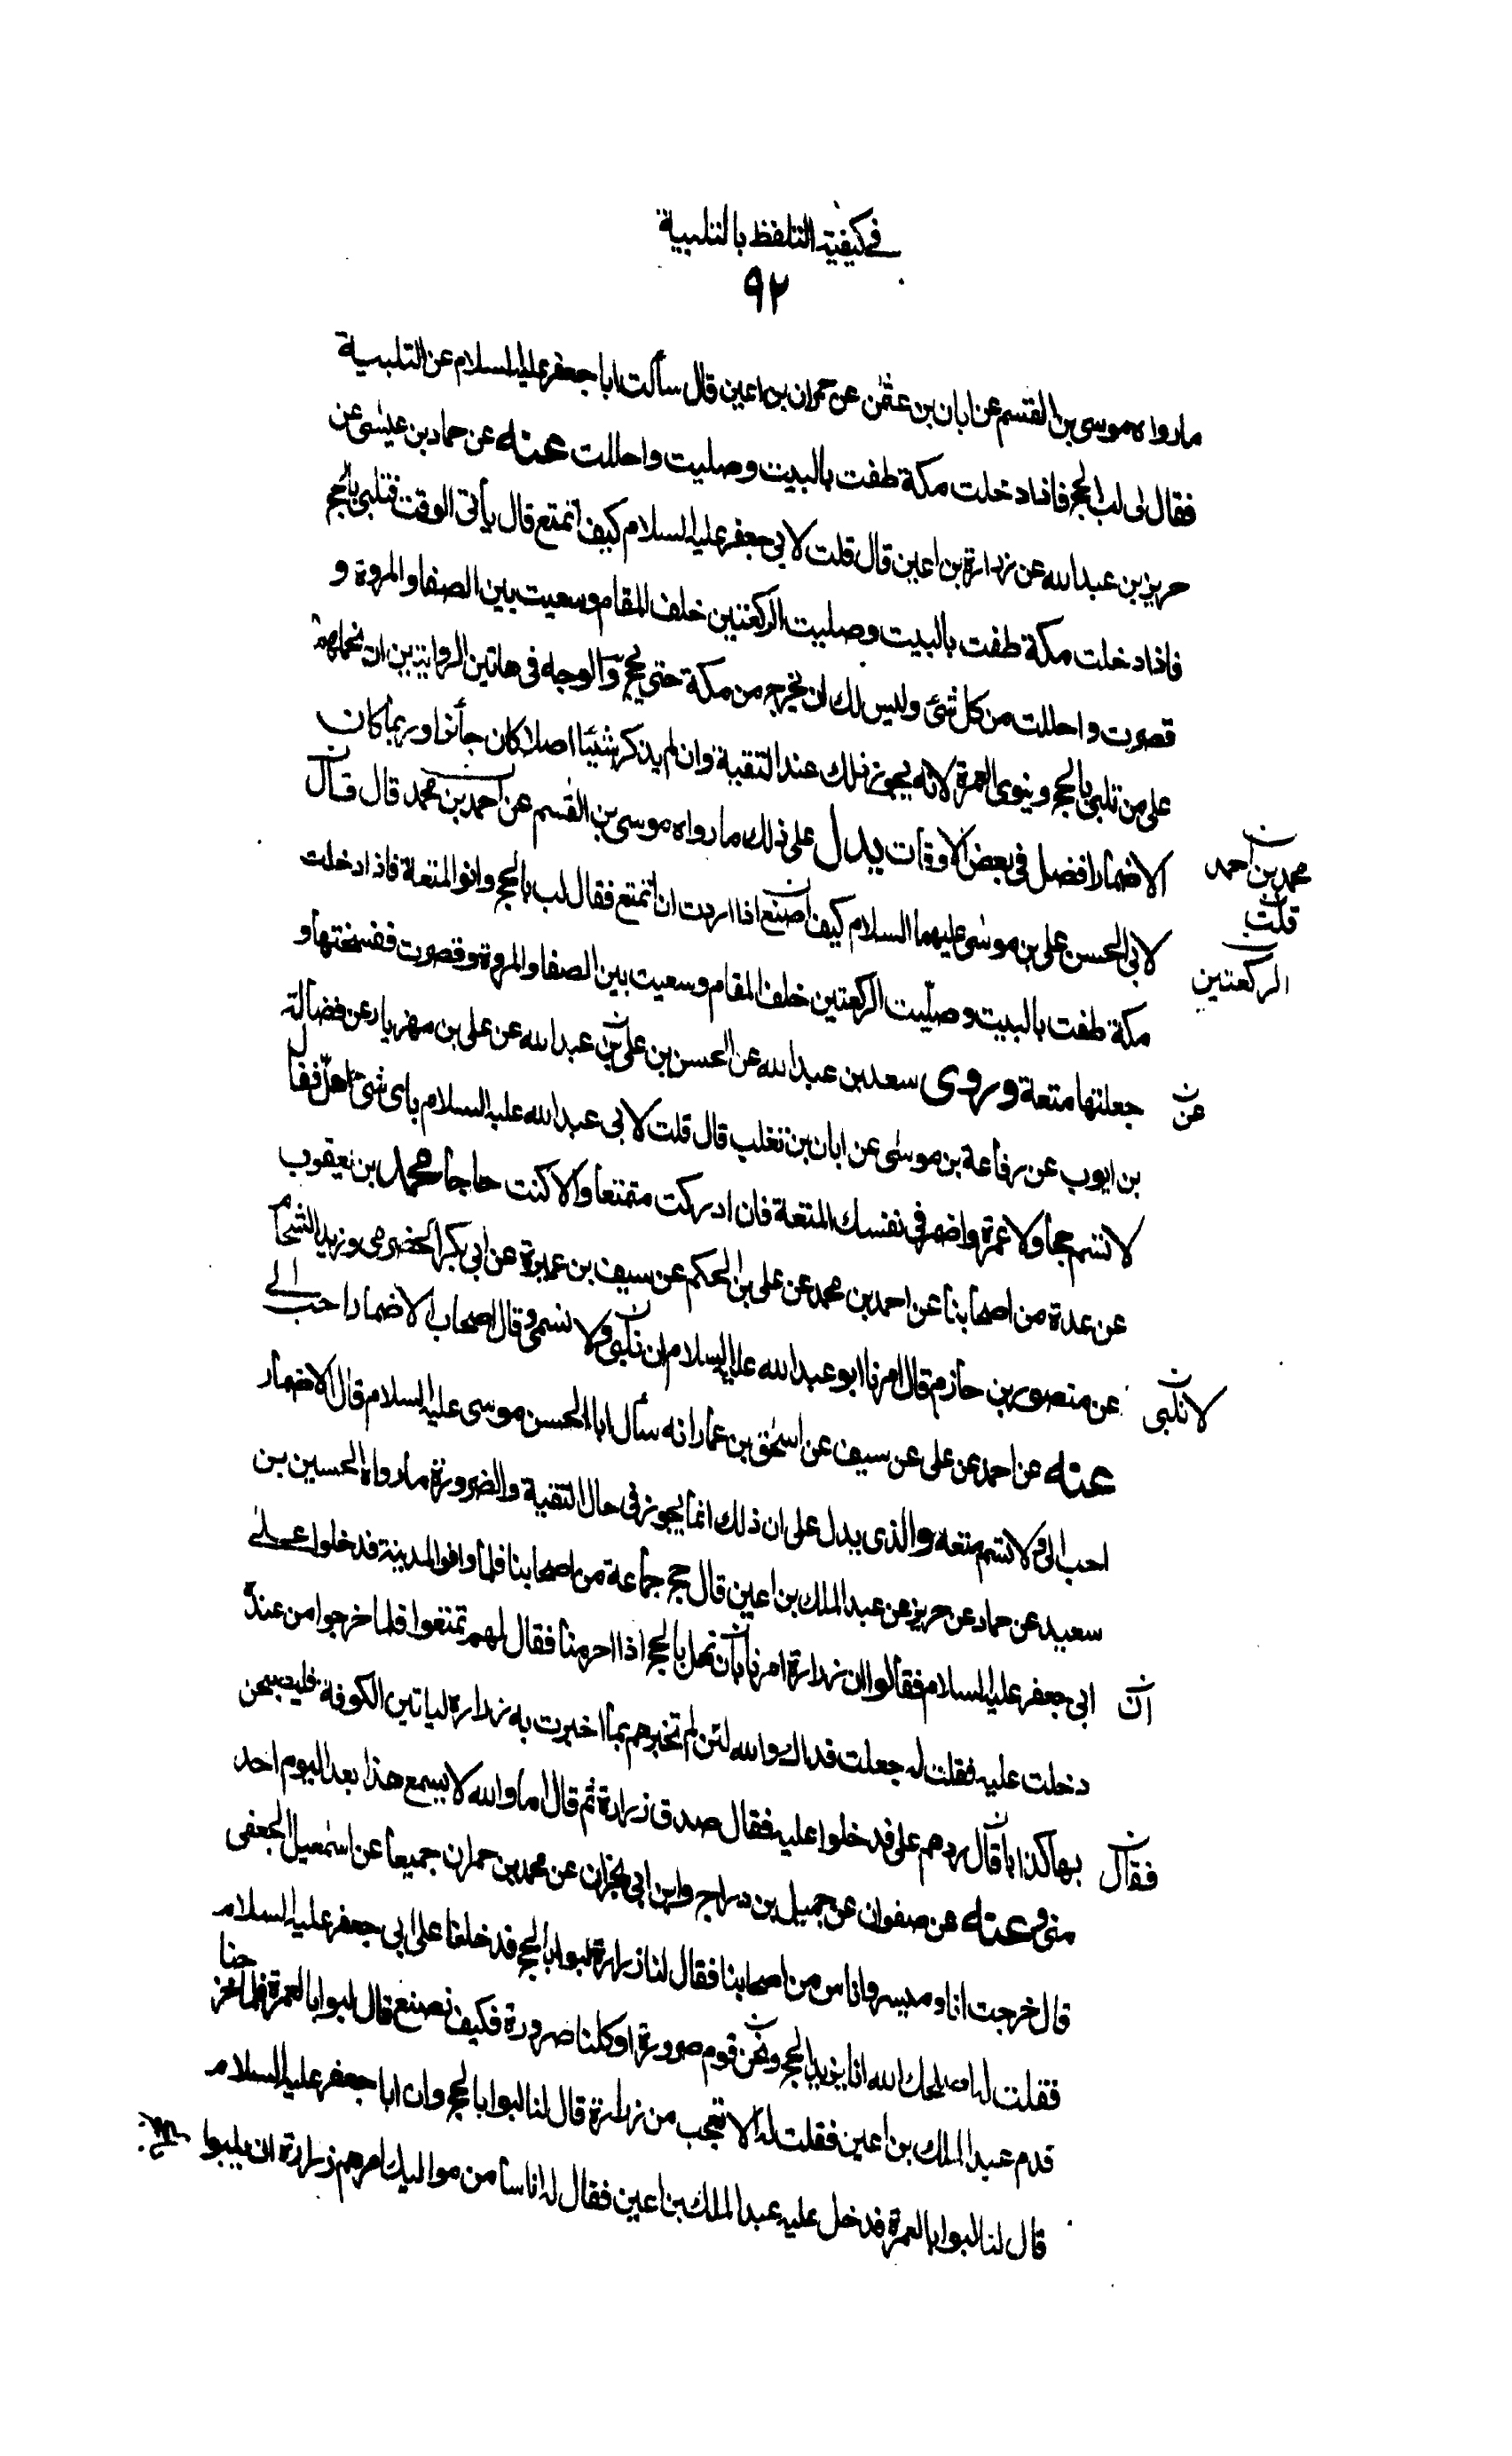 في كيفية التلفظ بالتلبية
٩٢
ما رواه موسى بن القسم عن ابان بن عثمن عن حمران بن اعين قال سألت ابا جعفر عليه السلام عن التلبية
فقال لى لب بالحج فاذا دخلت مكة طفت بالبيت وصليت واحللت عنه عن حماد بن عيسى عن
حريز بن عبد الله عن زرارة بن اعين قال قلت لابي جعفر عليه السلام كيف اتمتع قال يأتى الوقت فتلبى بالحج
فاذا دخلت مكة طفت بالبيت وصليت الركعتين خلف المقام وسعيت بين الصفا والمروة و
قصرت واحللت من كل شئ وليس لك ان تخرج من مكة حتى تحج والوجه فى هاتين الروايتين ان نحملهما
على من تلبى بالحج وينوى العمرة لانه يجوز ذلك عند التقية وان لم يذكر شيئا اصلا كان جائزا وربما كان
الاضمار افضل فى بعض الاوقات يدل على ذلك ما رواه موسى بن القسم عن احمد بن محمد قال قال
محمد بن احمد
قلت
لابى الحسن على بن موسى عليهما السلام كيف اصنع اذا اردت ان اتمتع فقال لب بالحج وانو المتعة فاذا دخلت
الركعتين
مكة طفت بالبيت وصليت الركعتين خلف المقام وسعيت بين الصفا والمروة وقصرت ففسختها و
جعلتها متعة وروى سعد بن عبد الله عن الحسن بن على بن عبد الله عن على بن مهزيار عن فضالة
عن
بن ايوب عن رفاعة بن موسى عن ابان بن تغلب قال قلت لابى عبد الله عليه السلام باى شئ اهل فقال
لا تسم حجا ولا عمرة واضمر فى نفسك المتعة فان ادركت متمتعا والا كنت حاجا محمد بن يعقوب
عن عدة من اصحابنا عن احمد بن محمد عن على بن الحكم عن سيف بن عميرة عن ابى بكر الحضرمى وزيد الشحام
عن منصور بن حازم قال امرنا ابو عبد الله عليه السلام ان نلبى ولا نسمى وقال اصحاب الاضمار احب الى
لا نلبى
عنه عن احمد عن على عن سيف عن اسحق بن عمار انه سأل ابا الحسن موسى عليه السلام قال الاضمار
احب الى ولا تسم متعه والذى يدل على ان ذلك انما يجوز فى حال التقية والضرورة ما رواه الحسين بن
سعيد عن حماد عن حريز عن عبد الملك بن اعين قال حج جماعة من اصحابنا فلما وافوا المدينة فدخلوا على
ابى جعفر عليه السلام فقالوا ان زرارة امرنا بان نهل بالحج اذا احرمنا فقال لهم تمتعوا فلما خرجوا من عنده
ان
دخلت عليه فقلت له جعلت فداك والله لئن لم تخبرهم بما اخبرت به زرارة لياتين الكوفة فليصبحن
بها كذابا قال ردهم على فدخلوا عليه فقال صدق زرارة ثم قال اما والله لا يسمع هذا بعد اليوم احد
فقال
منى وعنه عن صفوان عن جميل بن دراج وابن ابى نجران عن محمد بن حمران جميعا عن اسمعيل الجعفى
قال خرجت انا وميسر واناس من اصحابنا فقال لنا زرارة لبوا بالحج فدخلنا على ابى جعفر عليه السلام
فقلت له اصلحك الله انا نريد الحج ونحن قوم صرورة او كلنا صرورة فكيف نصنع قال لبوا بالعمرة فلما خرجنا
قدم عبد الملك بن اعين فقلت له الا تعجب من زرارة قال لنا لبوا بالحج وان ابا جعفر عليه السلام
قال لنا لبوا بالعمرة فدخل عليه عبد الملك بن اعين فقال له اناسا من مواليك امرهم زرارة ان يلبوا